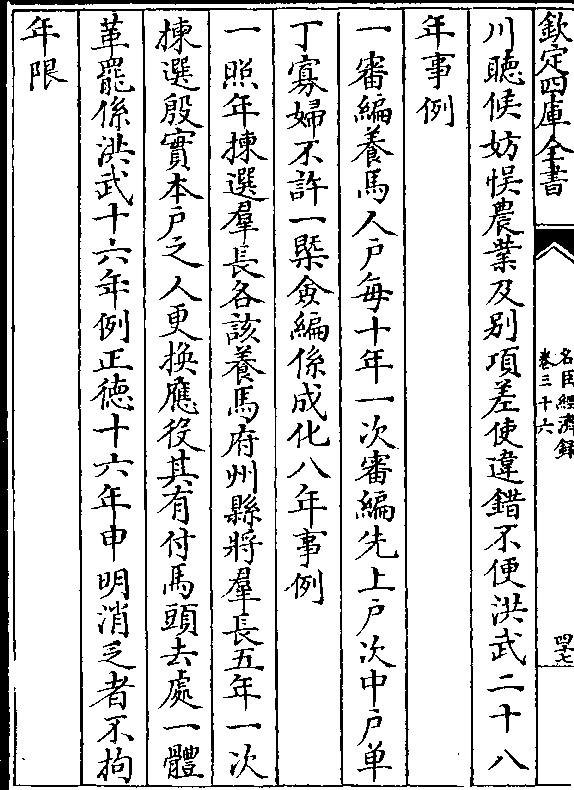 欽定四庫全書
名臣經濟録
卷三十六
四七
川聽候妨悮農業及别項差使違錯不便洪武二十八
年事例
一審編養馬人户每十年一次審編先上户次中户单
丁寡婦不許一槩僉編係成化八年事例
一照年揀選羣長各該養馬府州縣將羣長五年一次
揀選殷實本户之人更换應役其有付馬頭去處一體
革罷係洪武十六年例正德十六年申明消乏者不拘
年限